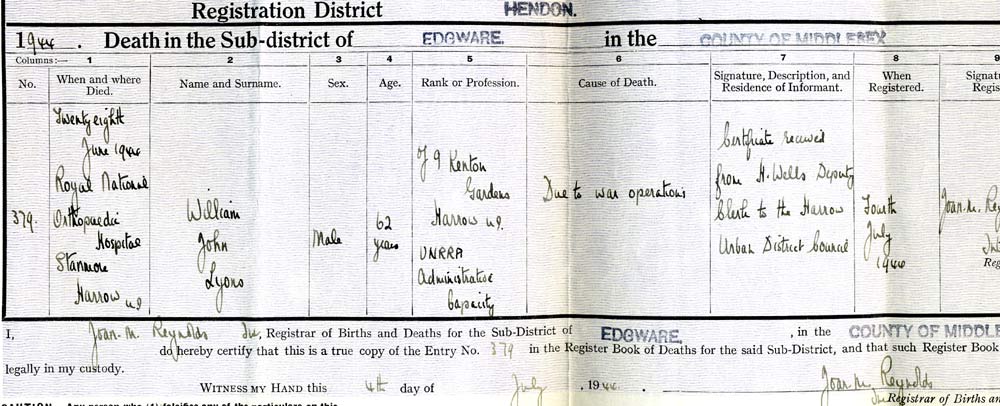 Registration District HENDON.
1944. Death in the Sub-district of EDGWARE. in the COUNTY OF MIDDLESEX
Columns:— 1 2 3 4 5 6 7 8 9
No. When and where Died. Name and Surname. Sex. Age. Rank or Profession. Cause of Death. Signature, Description, and Residence of Informant. When Registered. Signatu Regis
379.
Twenty eighth
June 1944
Royal National
Orthopaedic
Hospital
Stanmore
Harrow U.D.
William
John
Lyons
Male
62
years
Of 9 Kenton
Gardens
Harrow U.D.
UNRRA
Administrative
Capacity
Due to war operations
Certificate received
from H. Wells Deputy
Clerk to the Harrow
Urban District Council
Fourth
July
1944
Joan. M. Rey
Reg
I, Joan. M. Reynolds Registrar of Births and Deaths for the Sub-District of EDGWARE. , in the COUNTY OF MIDDLE
do hereby certify that this is a true copy of the Entry No. 379 in the Register Book of Deaths for the said Sub-District, and that such Register Book
legally in my custody.
WITNESS MY HAND this 4th day of July , 1944.
Joan M. Reynolds
Registrar of Births an
CAUTION.—Any person who (1) falsifies any of the particulars on this